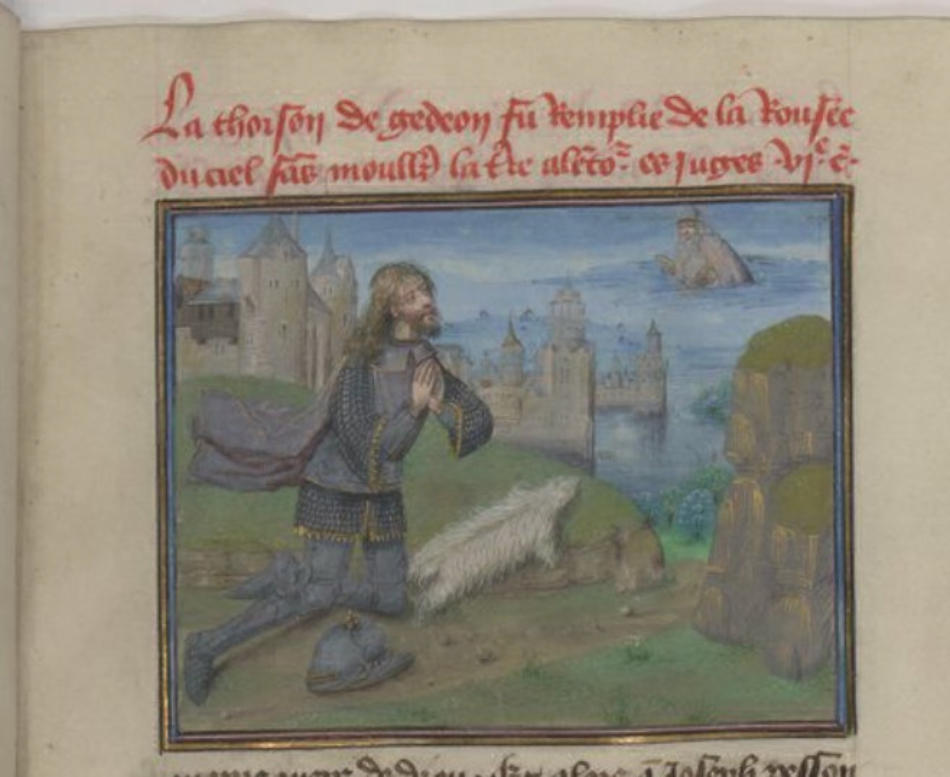 La thoison de gedeon fu Remplie de la Rousee
du ciel sãs moull̃ la t̃re alẽto᷑ es Juges ·vjᵉ· c̃·